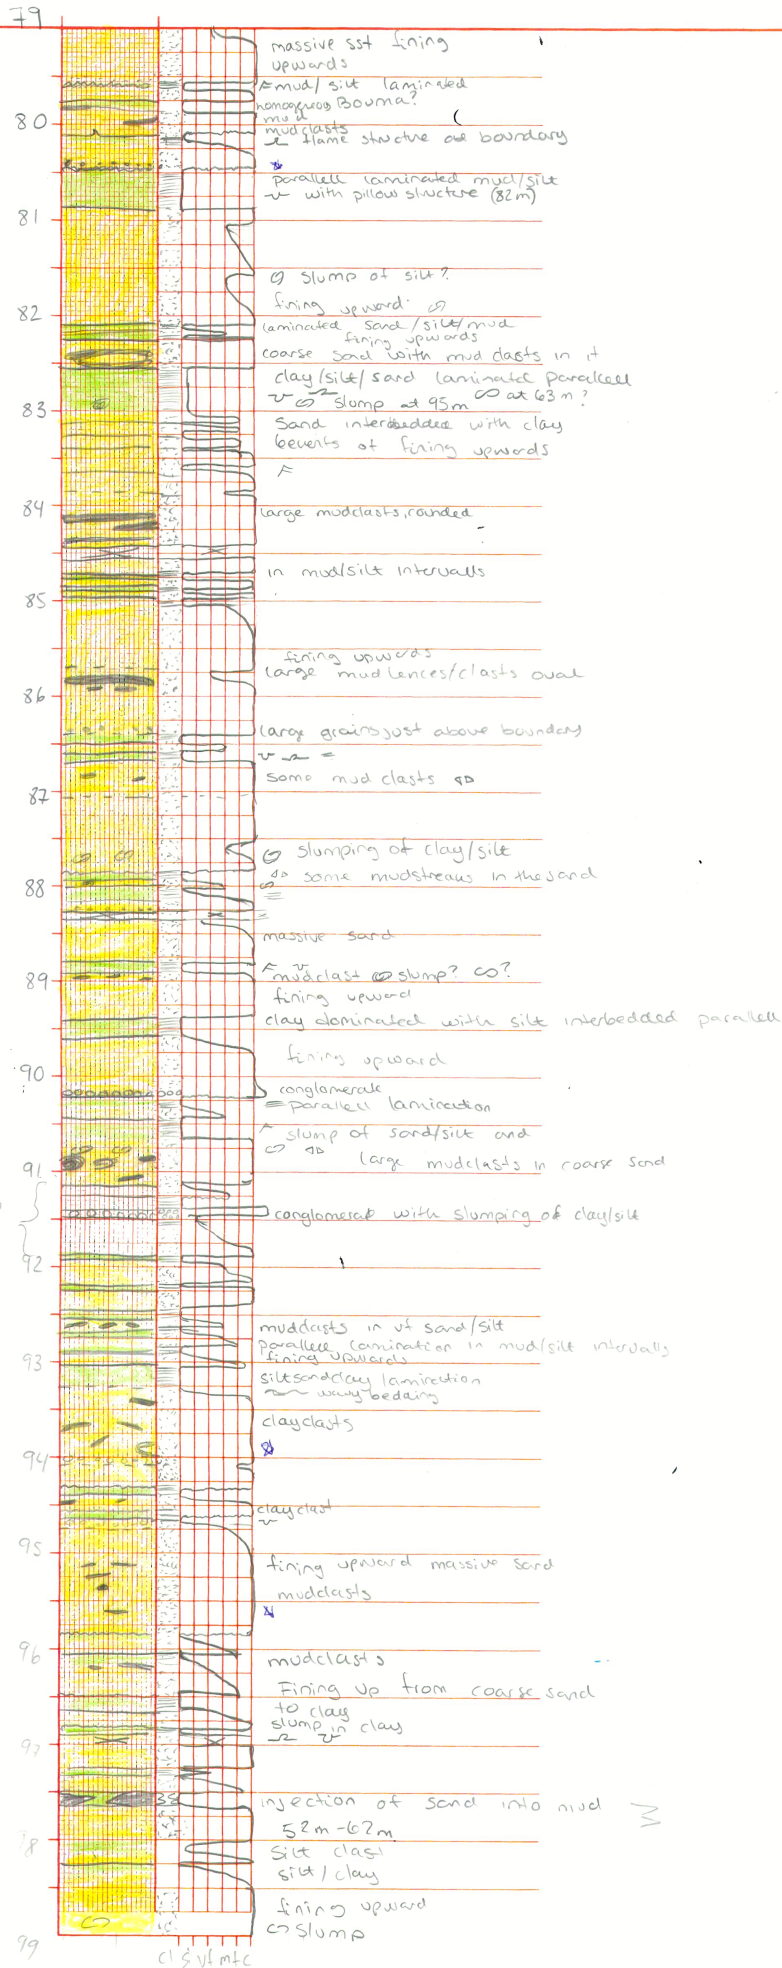 79
massive sst fining
upwards
F mud/ silt laminated
homogenous Bouma?
mud
80
mudclasts
flame structure at boundary
parallell laminated mud/silt
with pillow structure (82m)
81
slump of silt?
fining upward
82
laminated sand/silt/mud
fining upwards
coarse sand with mud clasts in it
clay/silt/sand laminated parallell
slump at 95m at 63m?
83
Sand interbedded with clay
6events of fining upwards
F
84
large mudclasts, rounded
in mud/silt intervalls
85
fining upwards
large mud lences/clasts oval
86
large grains just above boundary
some mud clasts
87
slumping of clay/silt
88
some mudstreaks in the sand
massive sand
F
mudclast slump?
89
fining upward
clay dominated with silt interbedded parallell
fining upward
90
conglomerate
parallell lamination
slump of sand/silt and
large mudclasts in coarse sand
91
conglomerat with slumping of clay/silt
92
mudclasts in vf sand/silt
parallell lamination in mud/silt intervalls
93
fining upwards
silt sand clay lamination
wavy bedding
clayclasts
94
clayclast
95
fining upward massive sand
mudclasts
96
mudclasts
Fining up from coarse sand
to clay
slump in clay
97
injection of sand into mud
52m-62m
98
Silt clast
silt/clay
fining upward
slump
99
cl s vf m f c